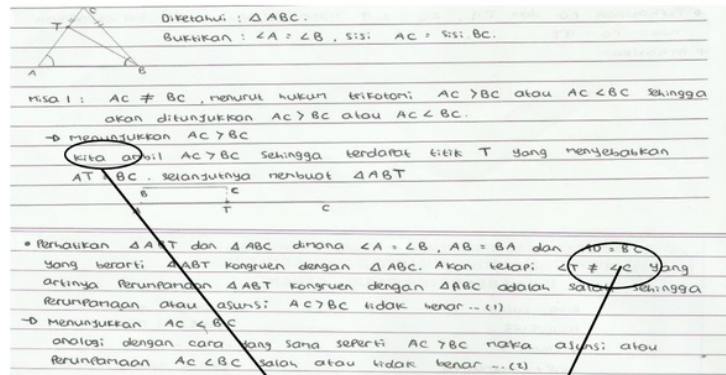 C
T
A
B
Diketahui : △ABC.
Buktikan : ∠A = ∠B , sisi AC = sisi BC.
misal : AC ≠ BC , menurut hukum trikotomi AC > BC atau AC < BC sehingga
akan ditunjukkan AC > BC atau AC < BC.
→ menunjukkan AC > BC
kita ambil AC > BC sehingga terdapat titik T yang menyebabkan
AT = BC . selanjutnya membuat △ABT
B C
A T C
• Perhatikan △ABT dan △ABC dimana ∠A = ∠B , AB = BA dan = BC
yang berarti △ABT kongruen dengan △ABC. Akan tetapi ∠T ≠ ∠C yang
artinya Perumpamaan △ABT kongruen dengan △ABC adalah salah sehingga
Perumpamaan atau asumsi AC > BC tidak benar ... (1)
→ Menunjukkan AC < BC
analogi dengan cara yang sama seperti AC > BC maka asumsi atau
Perumpamaan AC < BC salah atau tidak benar ... (2)